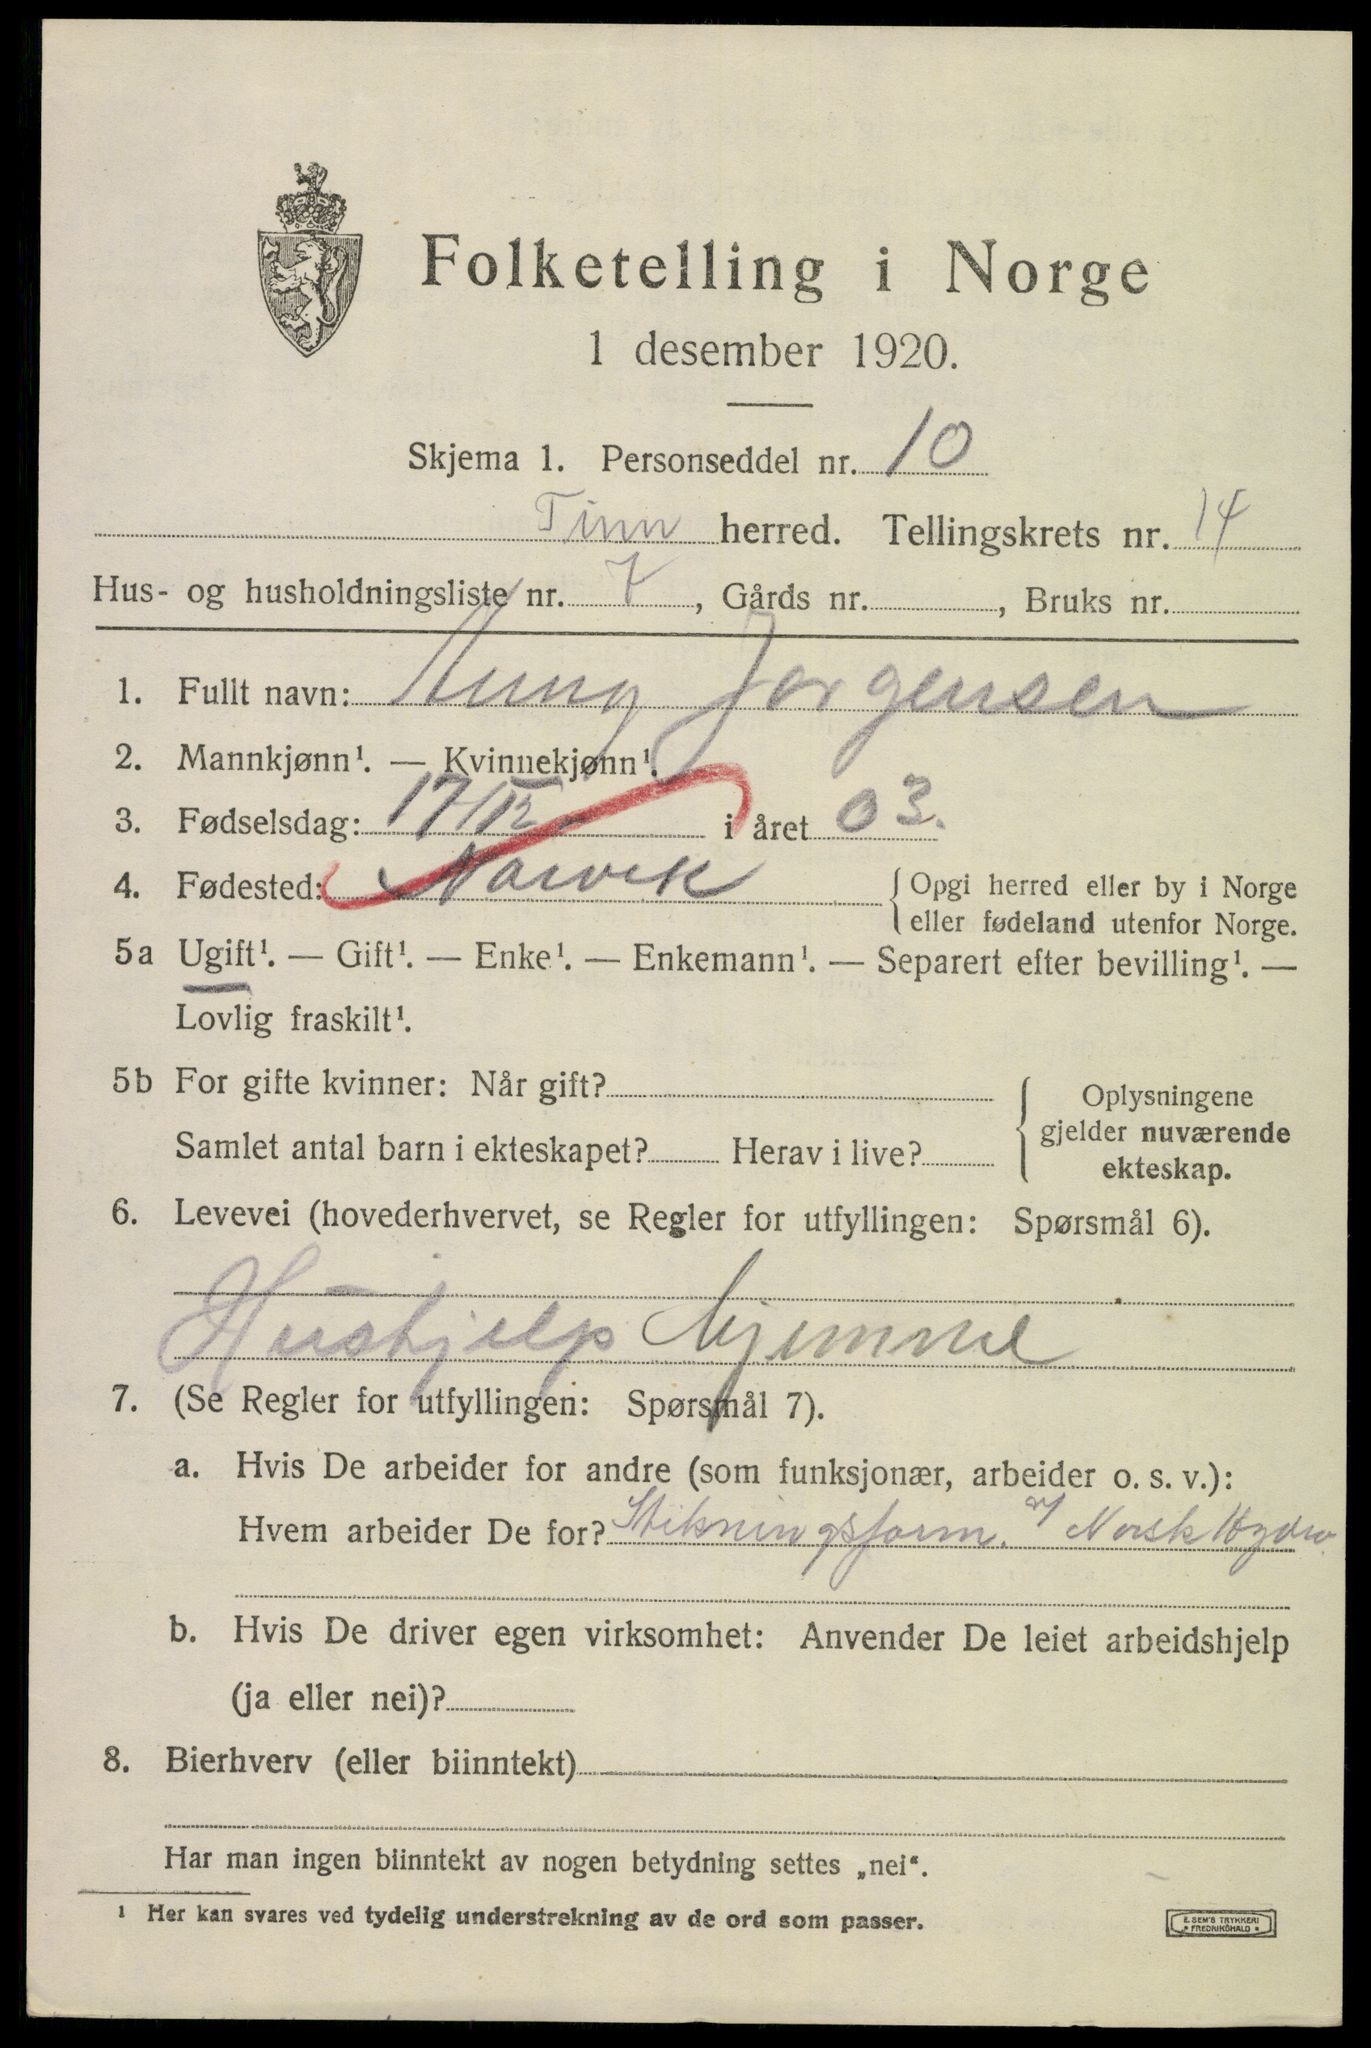 Folketelling i Norge
1 desember 1920.
Skjema 1. Personseddel nr. 10
Tinn herred. Tellingskrets nr. 14
Hus- og husholdningsliste nr. 7, Gårds nr. , Bruks nr.
1. Fullt navn: Jorgensen
2. Mannkjønn¹. — Kvinnekjønn¹.
3. Fødselsdag: 17/IX i året 03.
4. Fødested: Narvik { Opgi herred eller by i Norge
eller fødeland utenfor Norge.
5a Ugift¹. — Gift¹. — Enke¹. — Enkemann¹. — Separert efter bevilling¹. —
Lovlig fraskilt¹.
5b For gifte kvinner: Når gift? { Oplysningene
gjelder nuværende
Samlet antal barn i ekteskapet? Herav i live?
ekteskap.
6. Levevei (hovederhvervet, se Regler for utfyllingen: Spørsmål 6).
Hushjelp hjemme
7. (Se Regler for utfyllingen: Spørsmål 7).
a. Hvis De arbeider for andre (som funksjonær, arbeider o. s. v.):
Hvem arbeider De for? Stikningsform. v/ Norsk Hydro
b. Hvis De driver egen virksomhet: Anvender De leiet arbeidshjelp
(ja eller nei)?
8. Bierhverv (eller biinntekt)
Har man ingen biinntekt av nogen betydning settes „nei“.
¹ Her kan svares ved tydelig understrekning av de ord som passer.
E. SEM'S TRYKKERI
• FREDRIKSHALD •